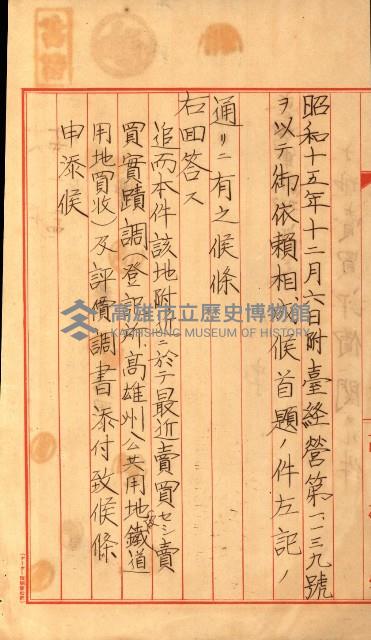 昭和十五年十二月六日附臺經營第一一三九號
ヲ以テ御依賴相成候首題ノ件左記ノ
通リニ有之候條
右回答ス
追而本件該地附近ニ於テ最近賣買セシ賣
買實蹟調(登記所高雄州公共用地鐵道
用地買收)及評價調書添付致候條
申添候
高雄市立歷史博物館
KAOHSIUNG MUSEUM OF HISTORY